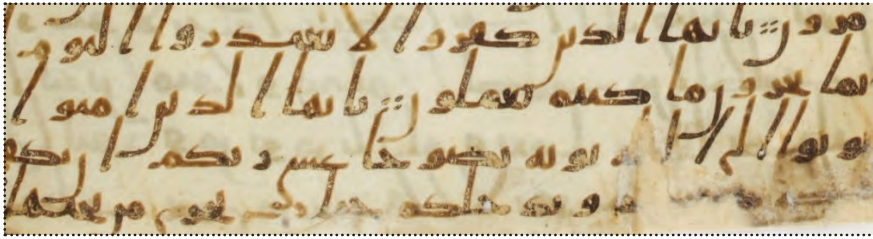 مرون يايها الذين كفروا لا تعتذروا اليوم
نما تجزون ما كنتم تعملون يايها الذين امنوا
توبوا الى ا توبه نصوحا عسى ربكم ان يكف
و يدخلكم جنت تجري من تحتها